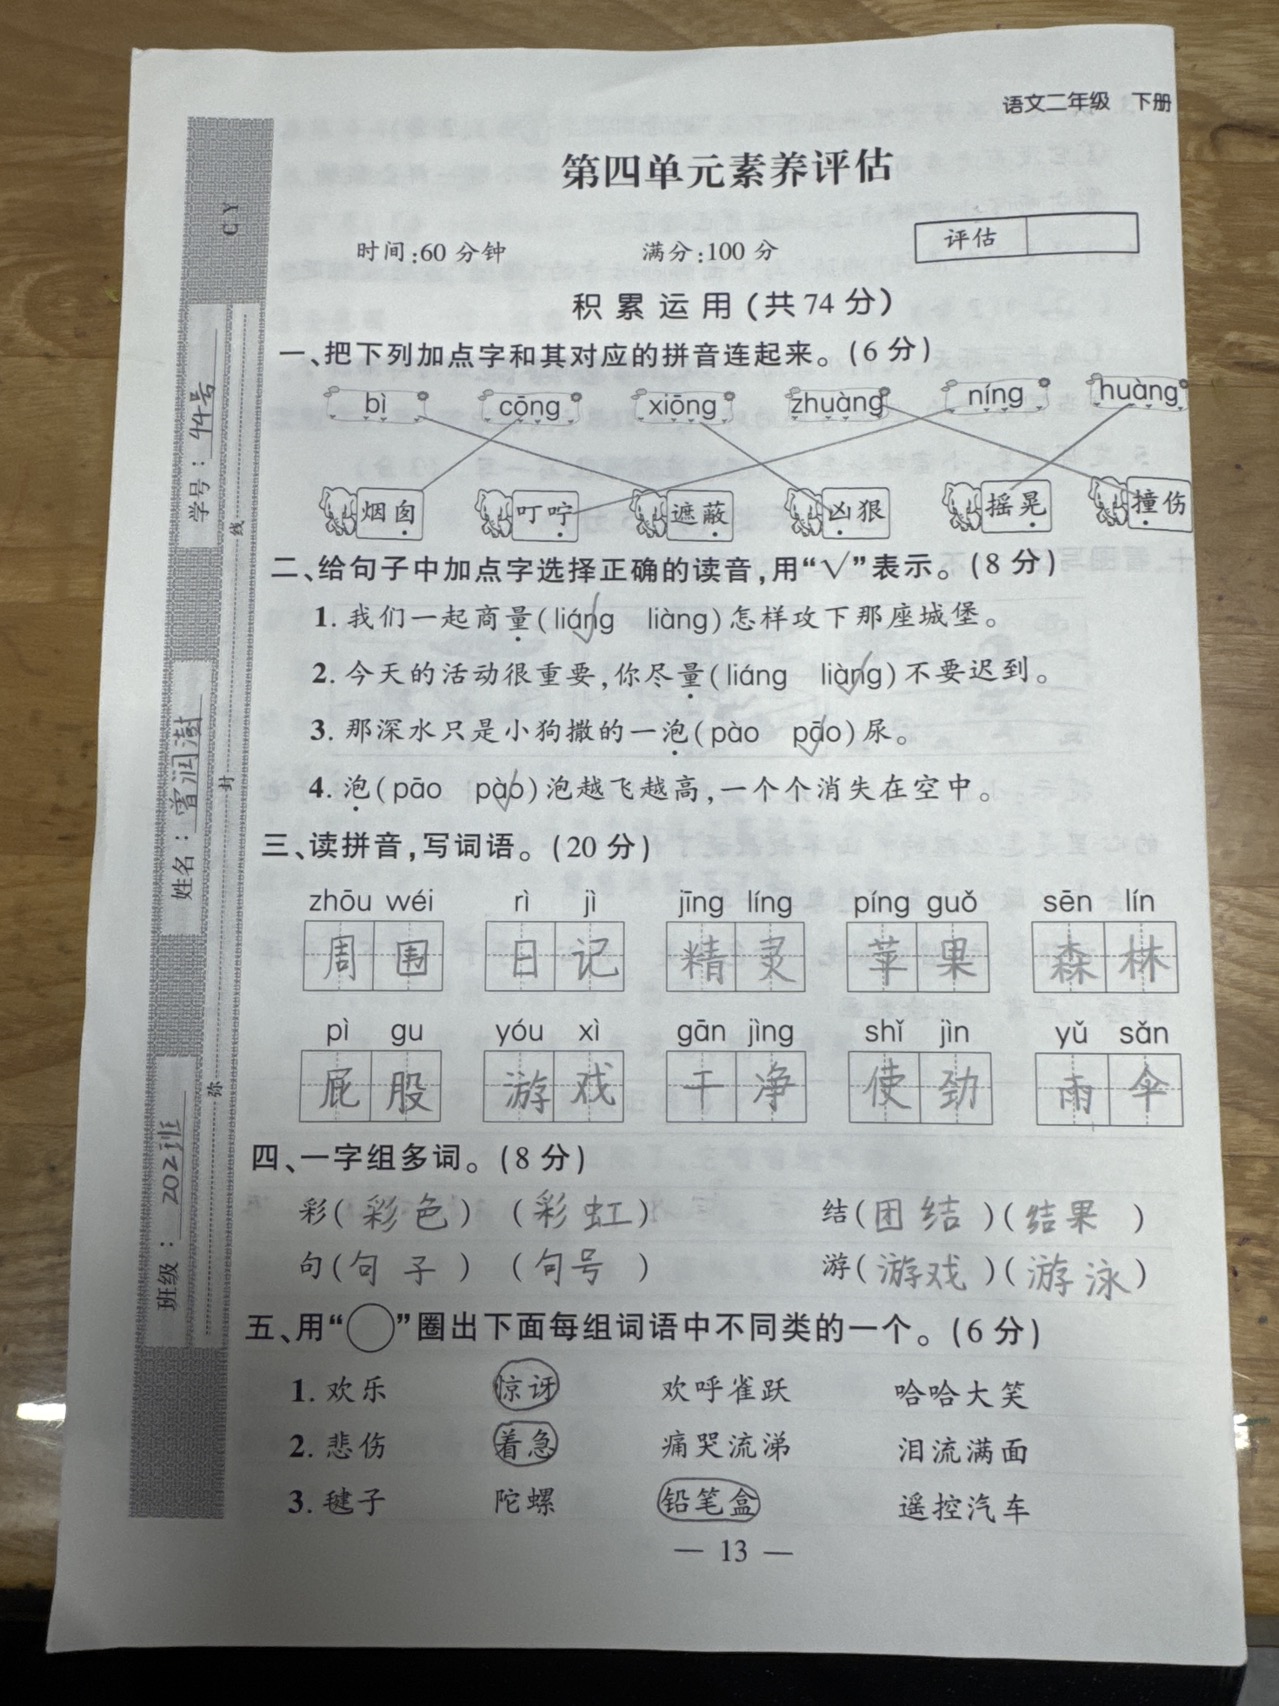 语文二年级 下册
第四单元素养评估
时间:60分钟 满分:100分 评估
积累运用(共74分)
一、把下列加点字和其对应的拼音连起来。(6分)
bì cōng xiōng zhuàng níng huàng
烟囱 叮咛 遮蔽 凶狠 摇晃 撞伤
二、给句子中加点字选择正确的读音,用“√”表示。(8分)
1. 我们一起商量(liáng√ liàng)怎样攻下那座城堡。
2. 今天的活动很重要,你尽量(liáng liàng√)不要迟到。
3. 那深水只是小狗撒的一泡(pào pāo√)尿。
4. 泡(pāo pào√)泡越飞越高,一个个消失在空中。
三、读拼音,写词语。(20分)
zhōu wéi rì jì jīng líng píng guǒ sēn lín
周围 日记 精灵 苹果 森林
pì gu yóu xì gān jìng shǐ jìn yǔ sǎn
屁股 游戏 干净 使劲 雨伞
四、一字组多词。(8分)
彩(彩色) (彩虹) 结(团结)(结果)
句(句子) (句号) 游(游戏)(游泳)
五、用“○”圈出下面每组词语中不同类的一个。(6分)
1. 欢乐 惊讶 欢呼雀跃 哈哈大笑
2. 悲伤 着急 痛哭流涕 泪流满面
3. 毽子 陀螺 铅笔盒 遥控汽车
— 13 —
C.Y
学号:44号
姓名:曾润澍
班级:202班
弥 封 线